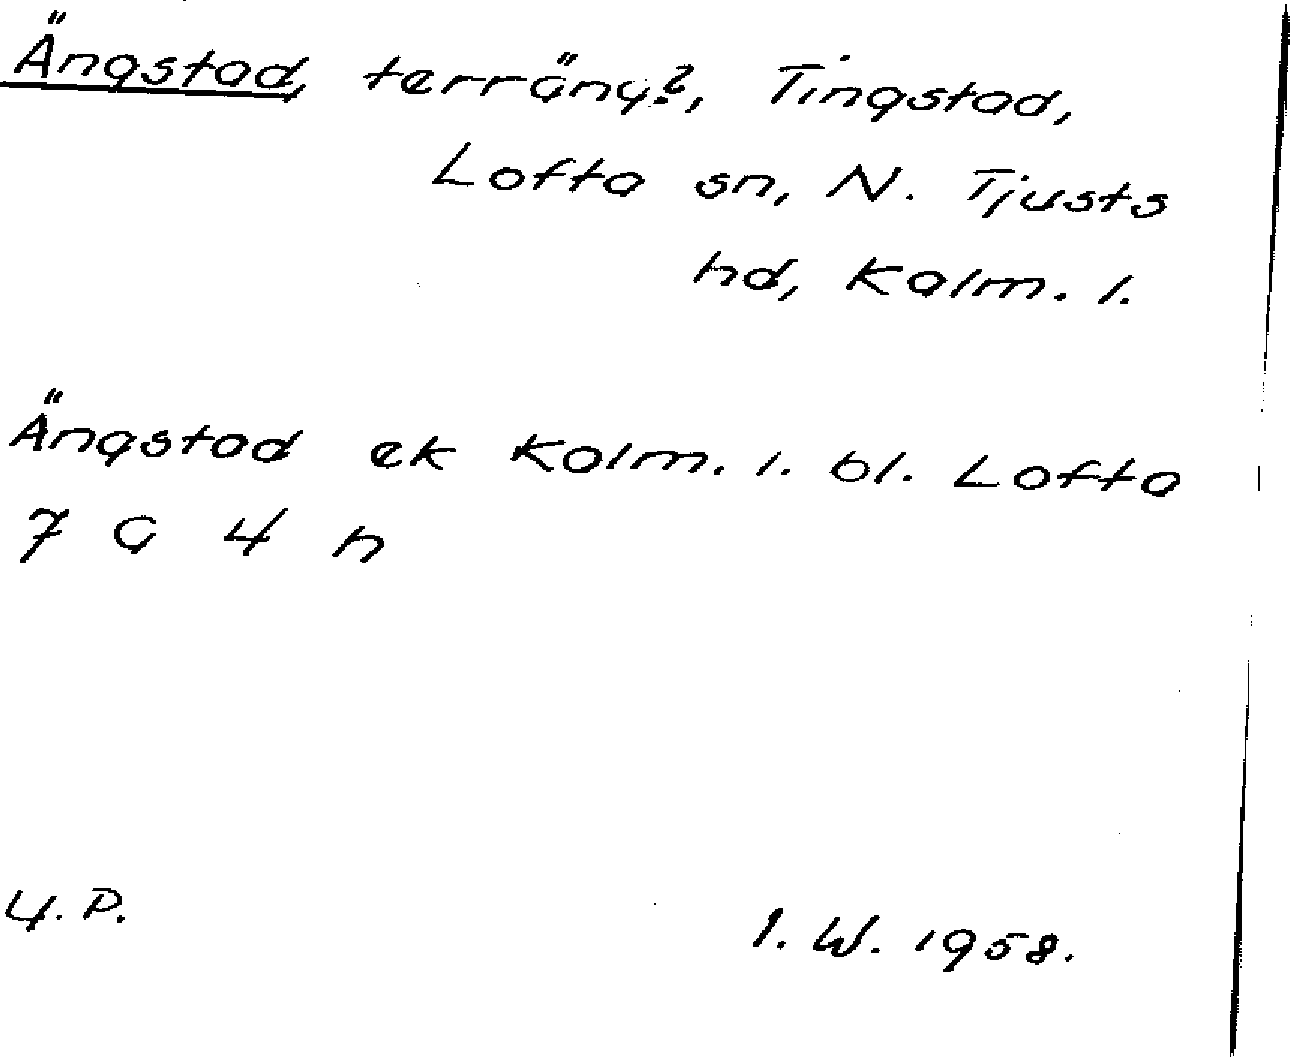 Ängstad, terräng?, Tingstad,
Lofta sn, N. Tjusts
hd, Kalm. l.
Ängstad ek Kalm. l. bl. Lofta
7 G 4 h
U. P. I. W. 1958.